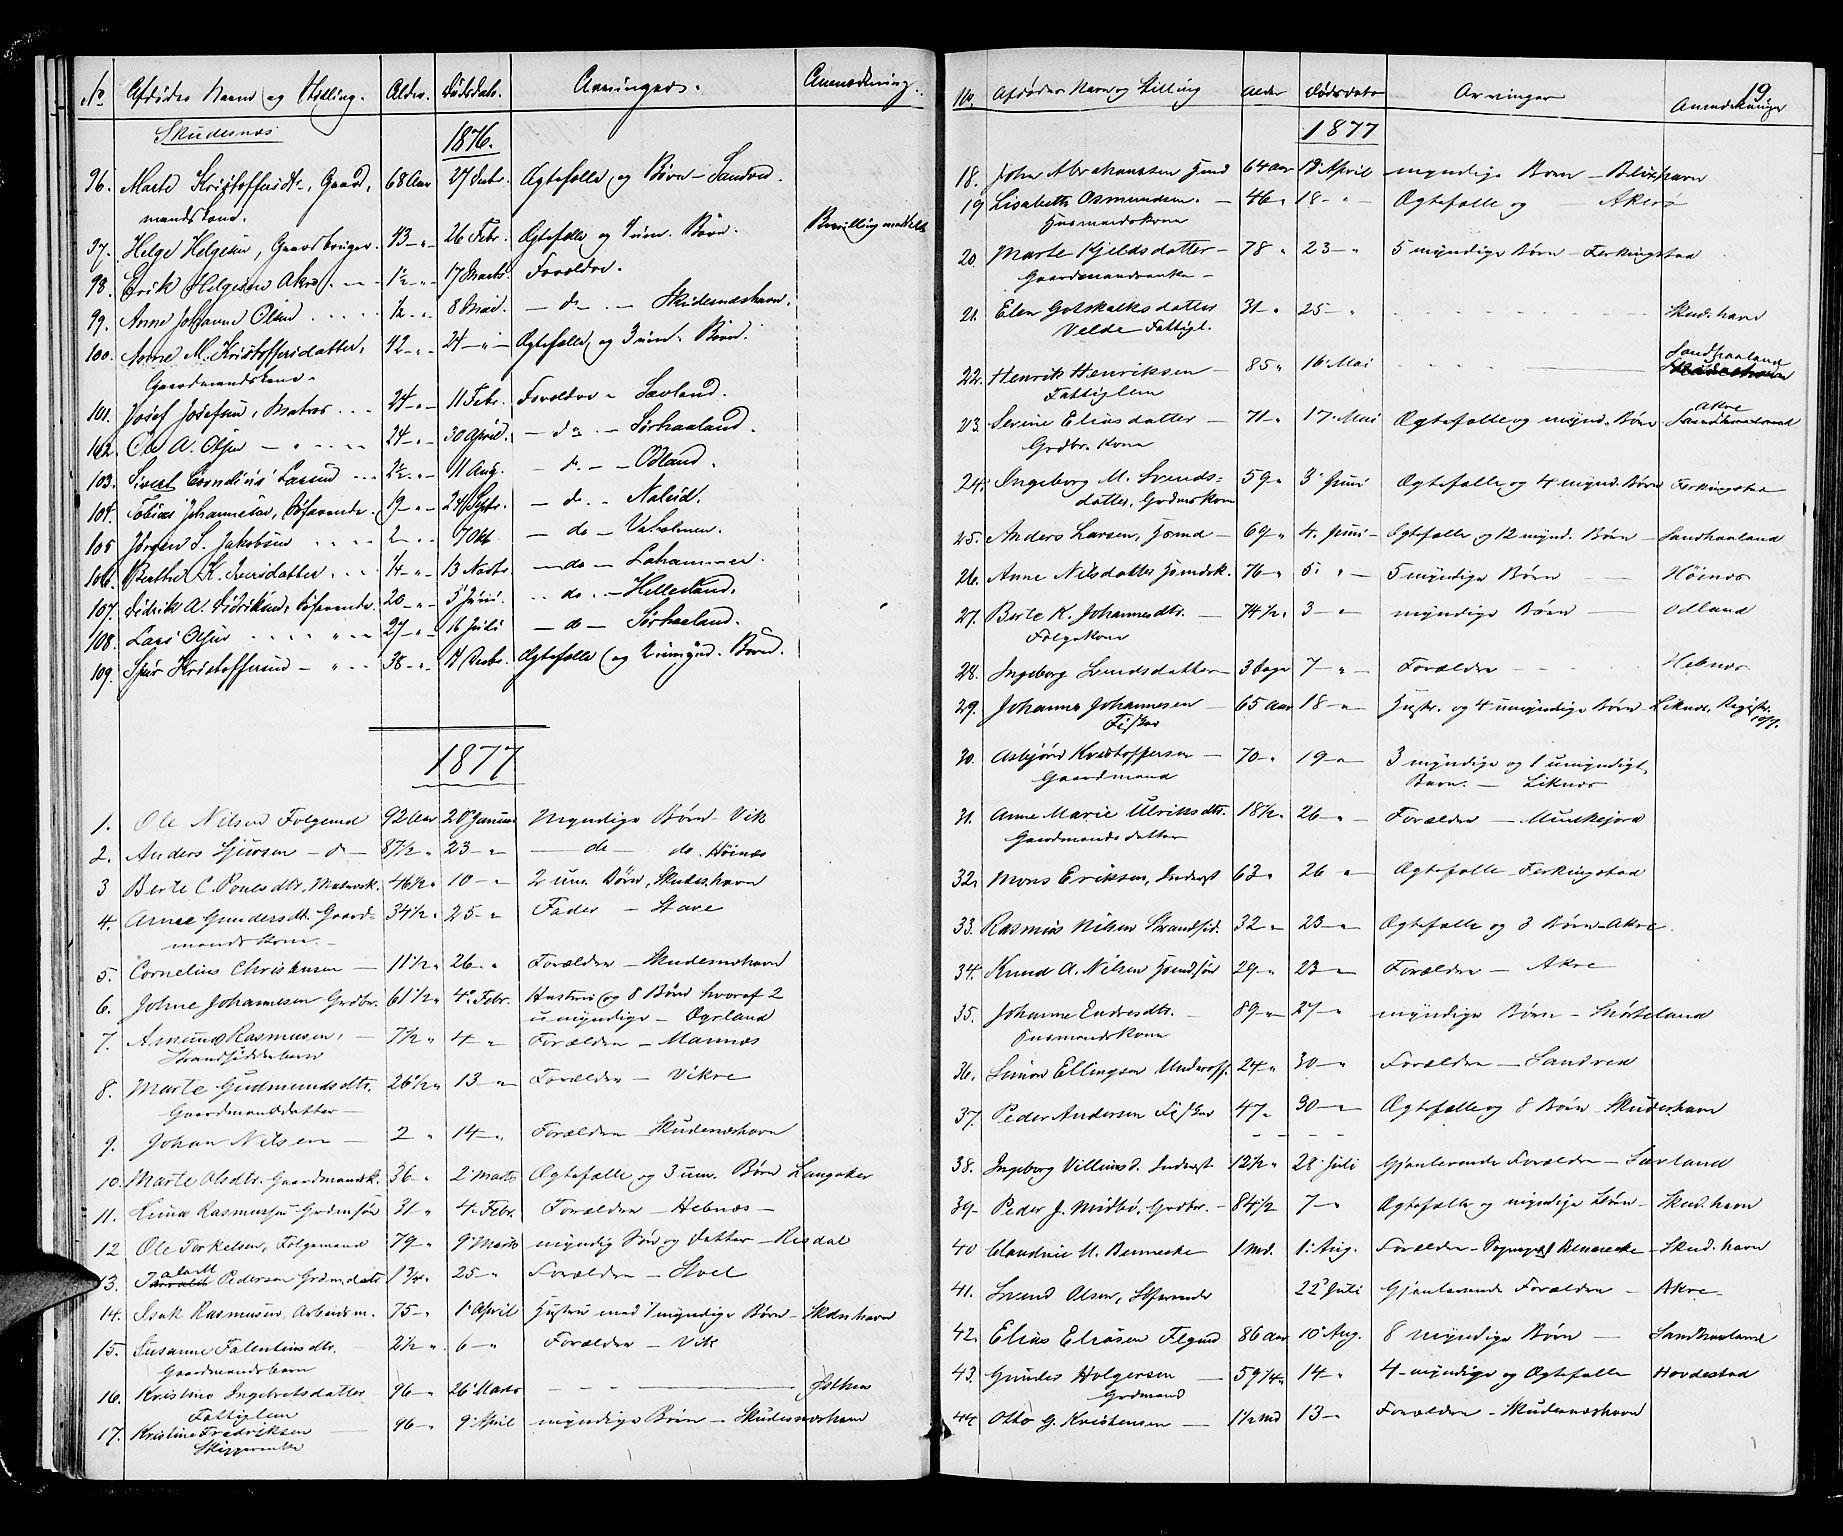 No Afdødes Navn og Stilling. Alder. Dødsdato. Arvinger. Anmærkning.
Skudesnæs 1876.
96. Marte Kristoffersdtr, Gaard, 68 Aar 27 Febr. Ægtefælle og Børn - Sandved
mandskone.
97. Helge Helgesen, Gaardbruger 43 - 26 Febr. Ægtefælle og 1 um. Børn. Bevilling meddelt
98. Erik Helgesen Akre 1½ 17 Marts Forældre.
99. Anne Johanne Olsen ½ 8 Mai. - do - Skudesnæshavn.
100. Anne M. Kristoffersdatter, 42 24 - Ægtefælle og 3 um. Børn.
Gaardmandskone.
101. Josef Josefsen, Matros 24 11 Febr. Forældre - Sævland.
102. Ole A. Olsen 24 30 April. - do - Sørhaaland.
103. Sivert Cornelius Larsen 2½ 11 Aug. - do - Odland.
104. Tobias Johannesen, Søfarende 19 24 Septr. - do -
105 Jørgen S. Jakobsen 2 7 Okt. - do - Vaholmen.
106. Berthe K. Iversdatter 14 13 - do - Lahammer.
107. Didrik A. Didriksen, Søfarende 20 5 Juni. - do - Hellesland.
108. Lars Olsen 27 16 Juli - do - Sørhaaland.
109. Kristoffersen 38 17 Ægtefælle og 2 umynd. Børn.
1877
1. Ole Nilsen Folgemd 92 Aar 20 Januar Myndige Børn - Vik
2. Anders Sjursen - do - 87½ 23 - do do. Høinæs
3 Berte C. Povlsdtr, Matrosk. 46½ 10 - 2 um. Børn, Skudeshavn
4. Anne Gundersdtr. Gaard- 34½ 25 - Fader - Stave
mandskone. -
5. Cornelius Christensen - 11½ 26 Forældre - Skudesnæshavn
6. Johne Johannesen Grdbr. 61½ 4 Febr. Hustru og 8 Børn hvoraf 2
umyndige - Øyrland
7. Amund Rasmussen, 7½ 4 Forældre - Mannæs
Strandsidderbarn
8. Marte Gudmundsdtr. 26½ 13 - Forældre - Vikre
Gaardmandsdatter -
9. Johan Nilsen 2 14 - Forældre - Skudesnæshavn
10. Marte Olsdtr. Gaardmandsk. 36 2 Marts Ægtefælle og 3 um. Børn Langaker
11. Rasmussen Grdmsøn 31 4 Febr. Forældre - Hebnæs -
12 Ole Torkelsen, Folgemand 79 9 Marts myndig Søn og Datter - Risdal
13. Pedersen Grdm.datr 1¾ 25 Forældre - Stol
14. Isak Rasmussen, Arbeidsm. 75 1 April Hustru med 1 myndige Børn - Skdeshavn
15. Susanne Falentinsdtr. 2½ 6 - Forældre - Vik
Gaardmandsbarn
16. Kristine Ingebretsdatter 96 26 Marts
Fattiglem
17. Kristine Fredriksen 96 9 April myndige Børn - Skudesnæshavn
Skipperenke
19
No. Afdødes Navn og Stilling Alder Dødsdato Arvinger Anmærkninger
1877
18. John Abrahamsen 64 Aar 18 April myndige Børn - Blikshavn
19 Lisabeth Osmundsen. - 46 18 - Ægtefælle og Akre
Husmandskone
20. Marte Kjeldsdatter - 78 23 - 5 myndige Børn - Ferkingstad
Gaardmandsenke -
21. Elen Gotskalksdatter 31 25 - Skud.havn
Velde Fattigl.
22. Henrik Henriksen - 85 16 Mai Sandhaaland
Fattiglem
23. Serine Eliasdatter - 71 17 Mai Ægtefælle og mynd. Børn Akre
Grdbr. Kone
24. Ingeborg M. Svends- 59 3 Juni Ægtefælle og 4 mynd. Børn Ferkingstad
datter, Grdmskone
25. Anders Larsen, 69 4. Juni - Ægtefælle og 12 mynd. Børn - Sandhaaland
26. Anne Nilsdatter 76 5. 5 myndige Børn Høinæs
27. Berte K. Johannesdtr. 74½ 3 - myndige Børn - Odland
Følgekone
28. Ingeborg Svendsdatter 3 Dage 7 Forældre - Hebnæs
29. Johannes Johannesen 65 Aar 18 - Hustr. og 4 umyndige Børn - Liknæs,
Fisker
30. Asbjørn Kristoffersen - 70 19 3 myndige og 1 umyndigt
Gaardmand Barn. - Liknæs
31. Anne Marie Ulriksdtr. 18½ 26 Forældre - Munkejord
Gaardmandsdatter
32. Mons Eriksen, Inderst 63 26 Ægtefælle - Ferkingstad
33. Rasmus Nilsen Strandsid. 32 23 - Ægtefælle og 3 Børn - Akre.
34. Knud A. Nilsen 29 23 - Forældre - Akre
35. Johanne Endresdtr. - 89 27 - myndige Børn -
Husmandskone
36. Simon Ellingsen Underoff. 24 30 - Forældre - Sandved
37. Peder Andersen Fisker 47 30 - Ægtefælle og 8 Børn - Skudeshavn
38. Ingeborg Villumsd. Inderst 12½ 28 Juli Gjenlevende Forældre - Sævland
39 - Peder J. Midbø, Grdbr. - 84½ 7 - Ægtefælle og myndige Børn - Skud.havn
40 Claudine M. Bennecke 1 md. 1. Aug. Forældre - Bennecke - Skud.havn
41. Svend Olsen, Søfarende 22 Juli Gjenlevende Forældre - Akre -
42. Elias Eliasen 86 Aar 10 Aug. 8 myndige Børn - Sandhaaland
43. Gunder Holgersen 59¼ 14 - 4 myndige og Ægtefælle Hovdestad
Grdmand
44 Otto G. Kristensen - 1½ md 13 - Forældre - Skudesnæshavn